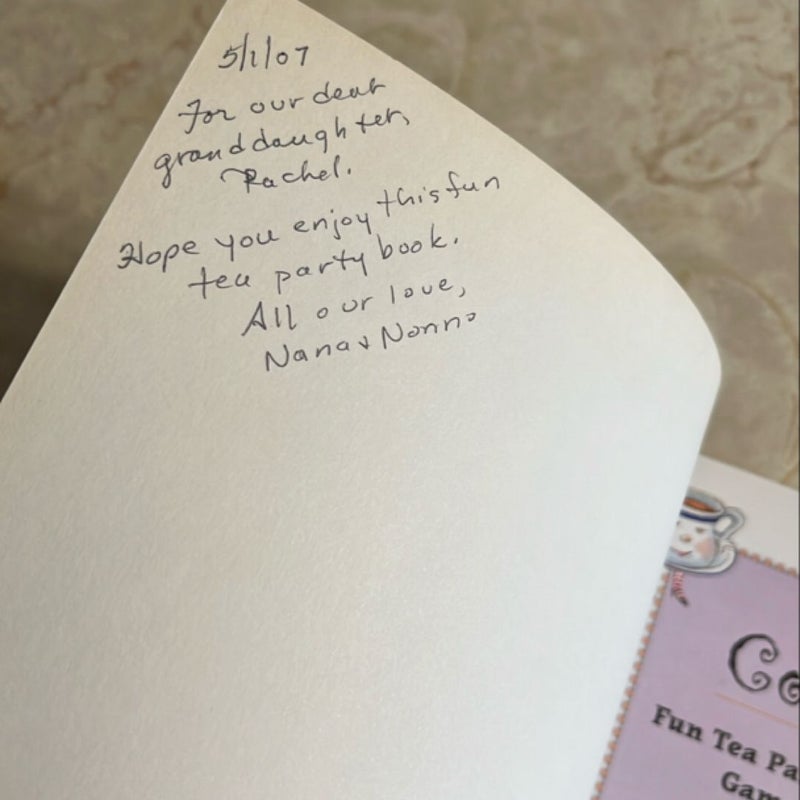 5/1/07
For our dear
granddaughter,
Rachel.
Hope you enjoy this fun
tea party book.
All our love,
Nana & Nonno
Fun Tea